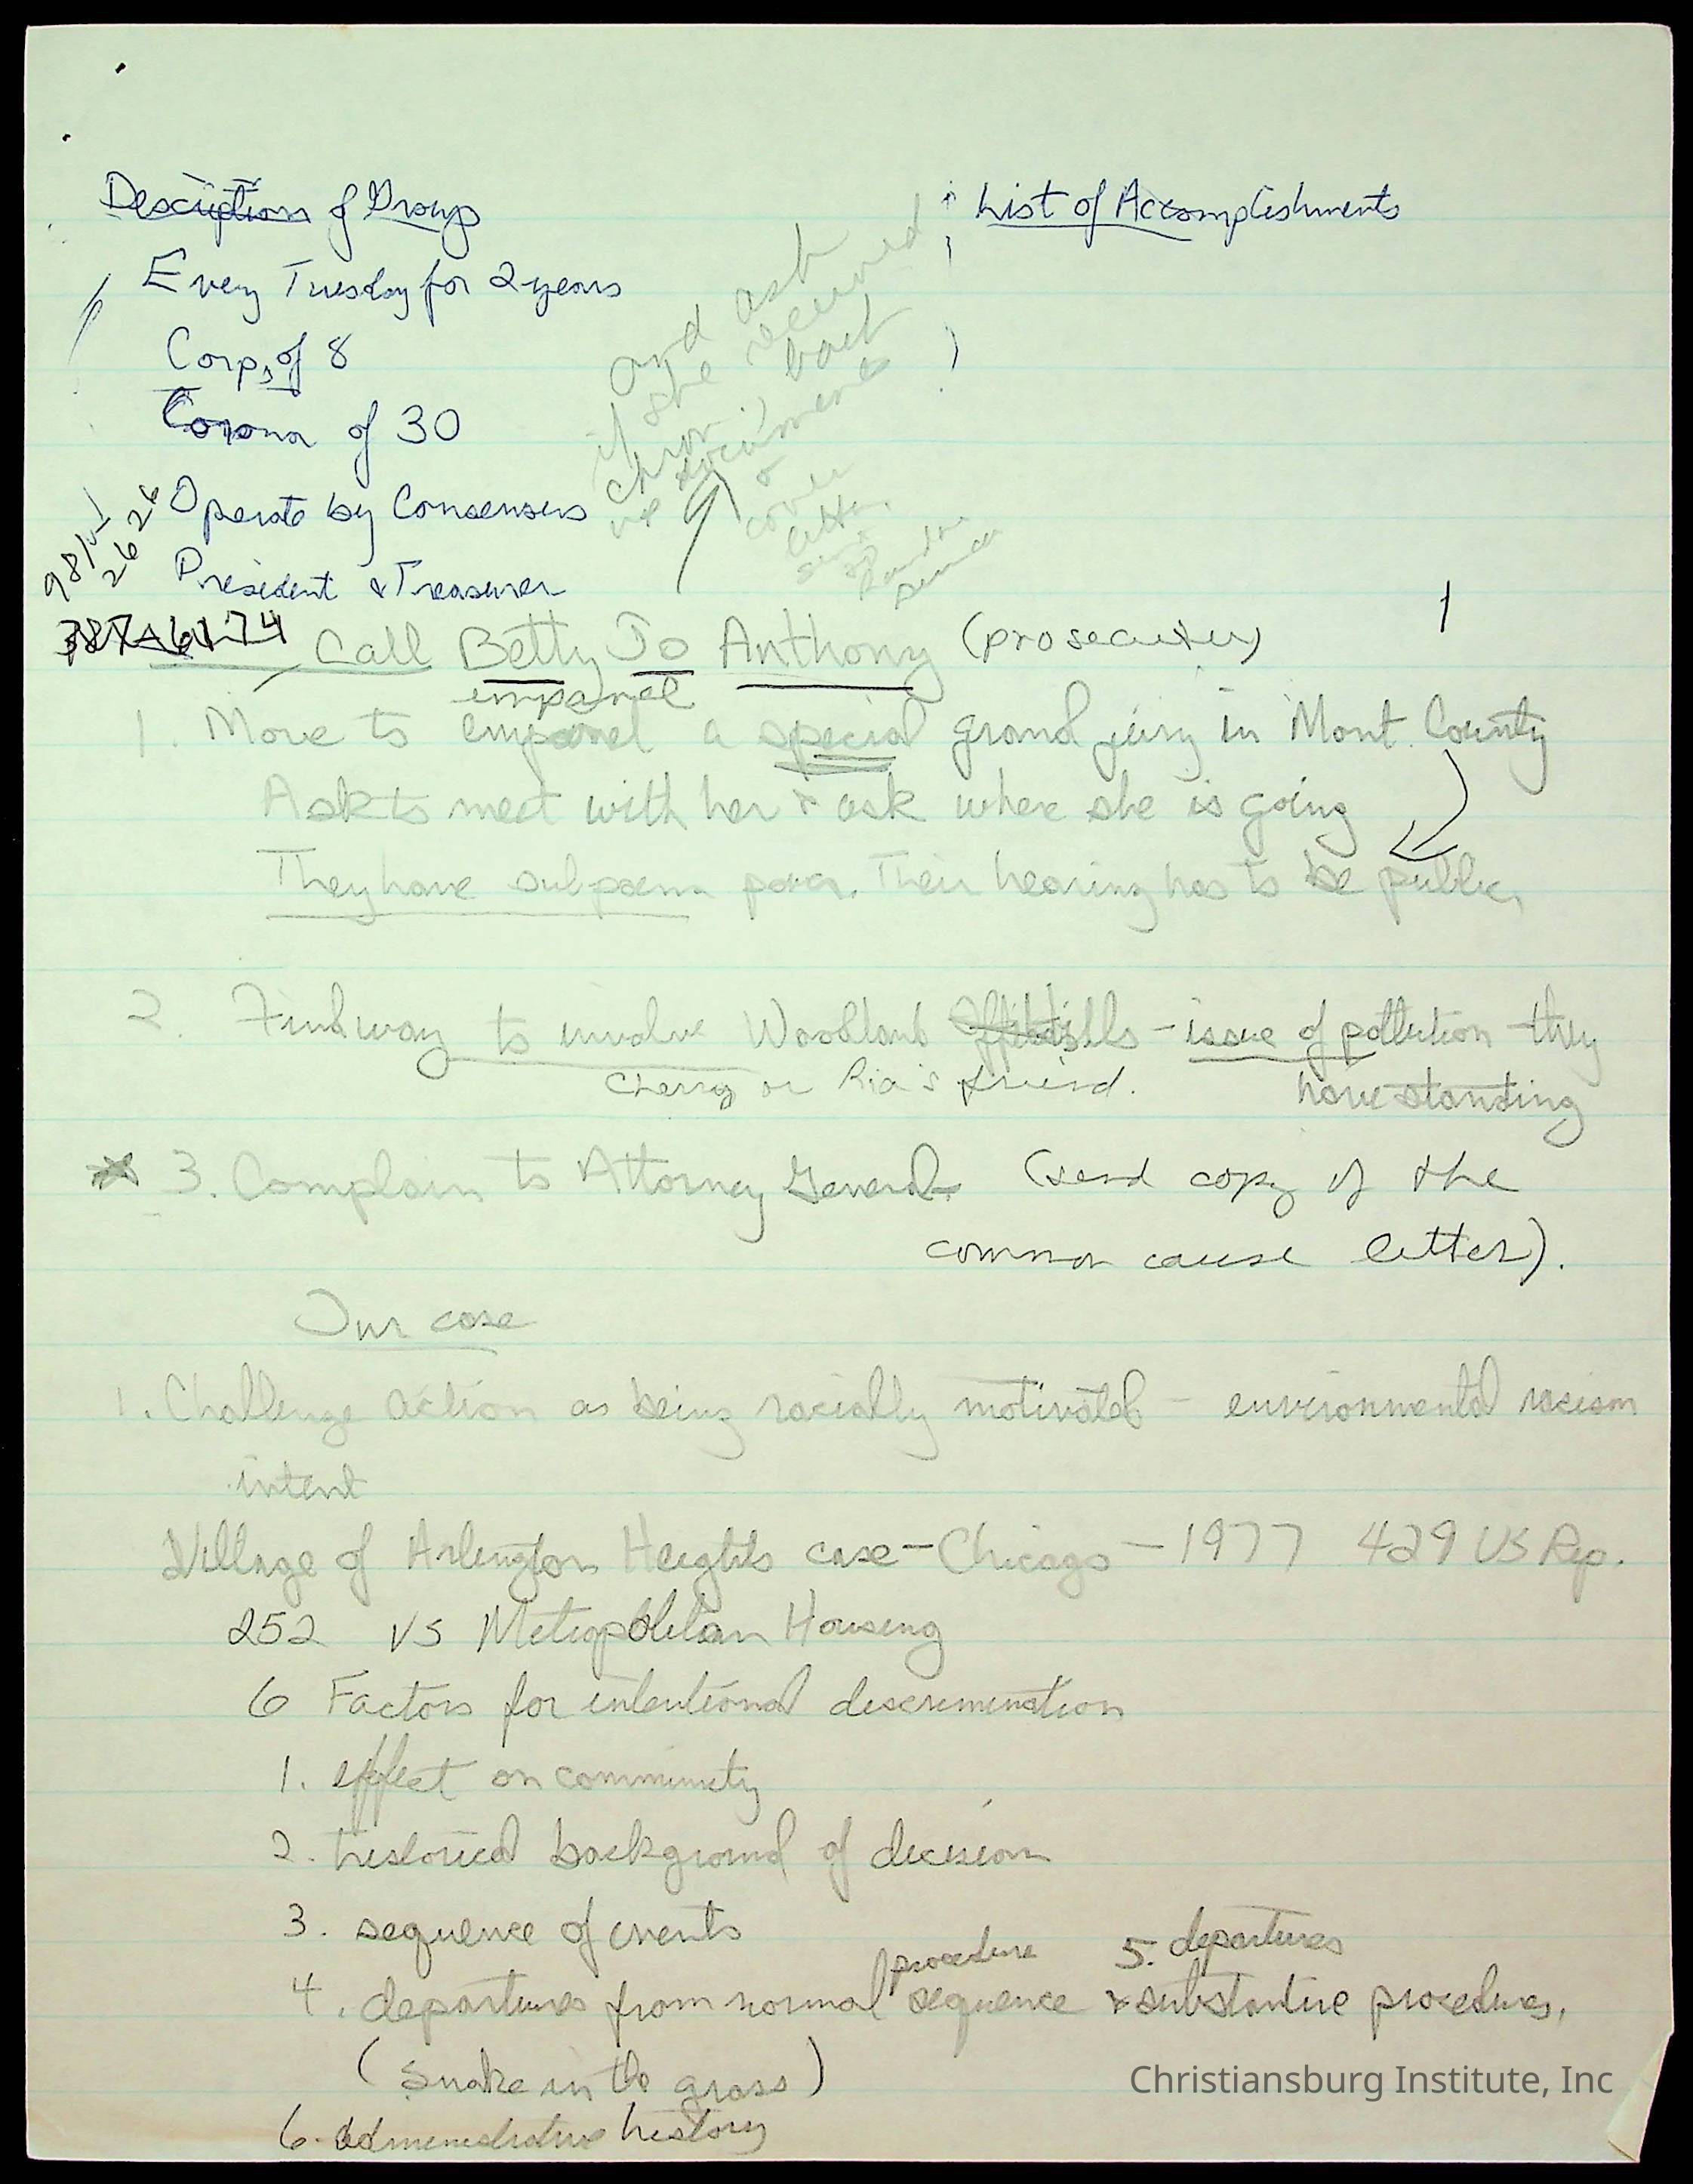 Description of Group
List of Accomplishments
Every Tuesday for 2 years
Corps of 8
Corona of 30
Operate by Consensus
President & Treasurer
and ask
if she received
back
documents
cover
letter
Call Betty Jo Anthony (prosecutor)
1
empanel
1. Move to empanel a special grand jury in Mont. County
Ask to meet with her & ask where she is going
They have subpoena power. Their hearing has to be public,
2. Find way to involve Woodland Hills - issue of pollution they
Cherry or Ria's friend. have standing
3. Complain to Attorney General (send copy of the
common cause letter).
Our case
1. Challenge action as being racially motivated - environmental racism
intent
Village of Arlington Heights case - Chicago - 1977 429 US Rep.
252 VS Metropolitan Housing
6 Factors for intentional discrimination
1. effect on community
2. historical background of decision
3. sequence of events
procedure 5. departures
4. departures from normal sequence & substantive procedures,
(Snake in the grass)
6. administrative history
Christiansburg Institute, Inc